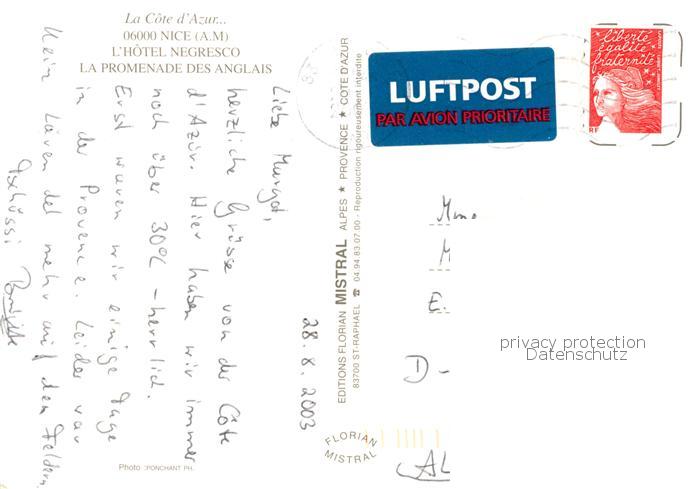 La Côte d'Azur...
06000 NICE (A.M)
L'HÔTEL NEGRESCO
LA PROMENADE DES ANGLAIS
28.8.2003
Liebe Margot,
herzliche Grüsse von der Côte
d'Azur. Hier haben wir immer
noch über 30°C – herrlich.
Erst waren wir einige Tage
in der Provence. Leider war
kein Lavendel mehr auf den Feldern.
Tschüssi Brigitte
Photo : PONCHANT PH.
EDITIONS FLORIAN MISTRAL ALPES ★ PROVENCE ★ COTE D'AZUR
83700 ST-RAPHAEL ☎ 04.94.83.07.00 - Reproduction rigoureusement interdite
FLORIAN
MISTRAL
LUFTPOST
PAR AVION PRIORITAIRE
liberté
égalité
fraternité
RF
M
E.
D -
AL
privacy protection
Datenschutz